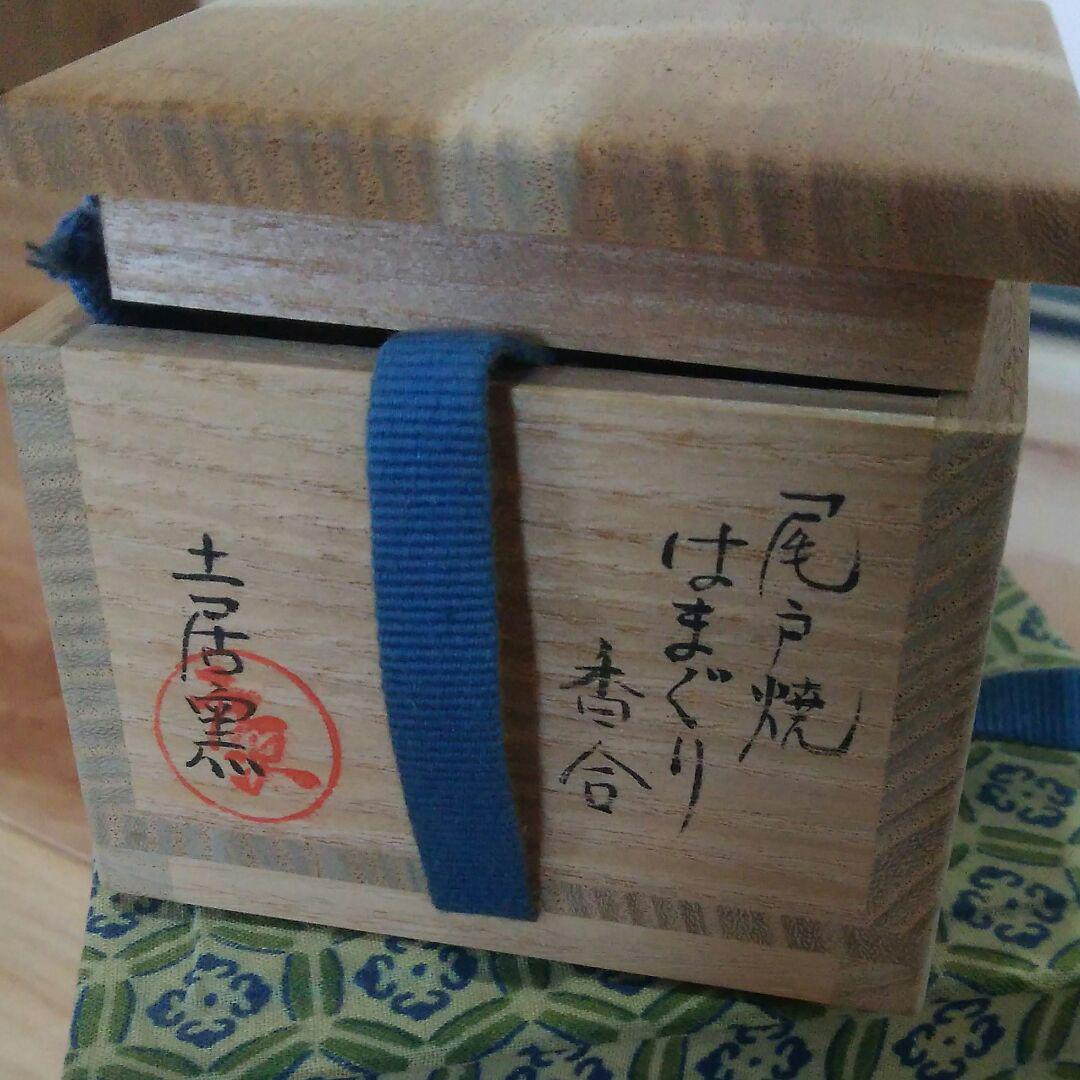 尾戸焼
はまぐり
香合
土居窯